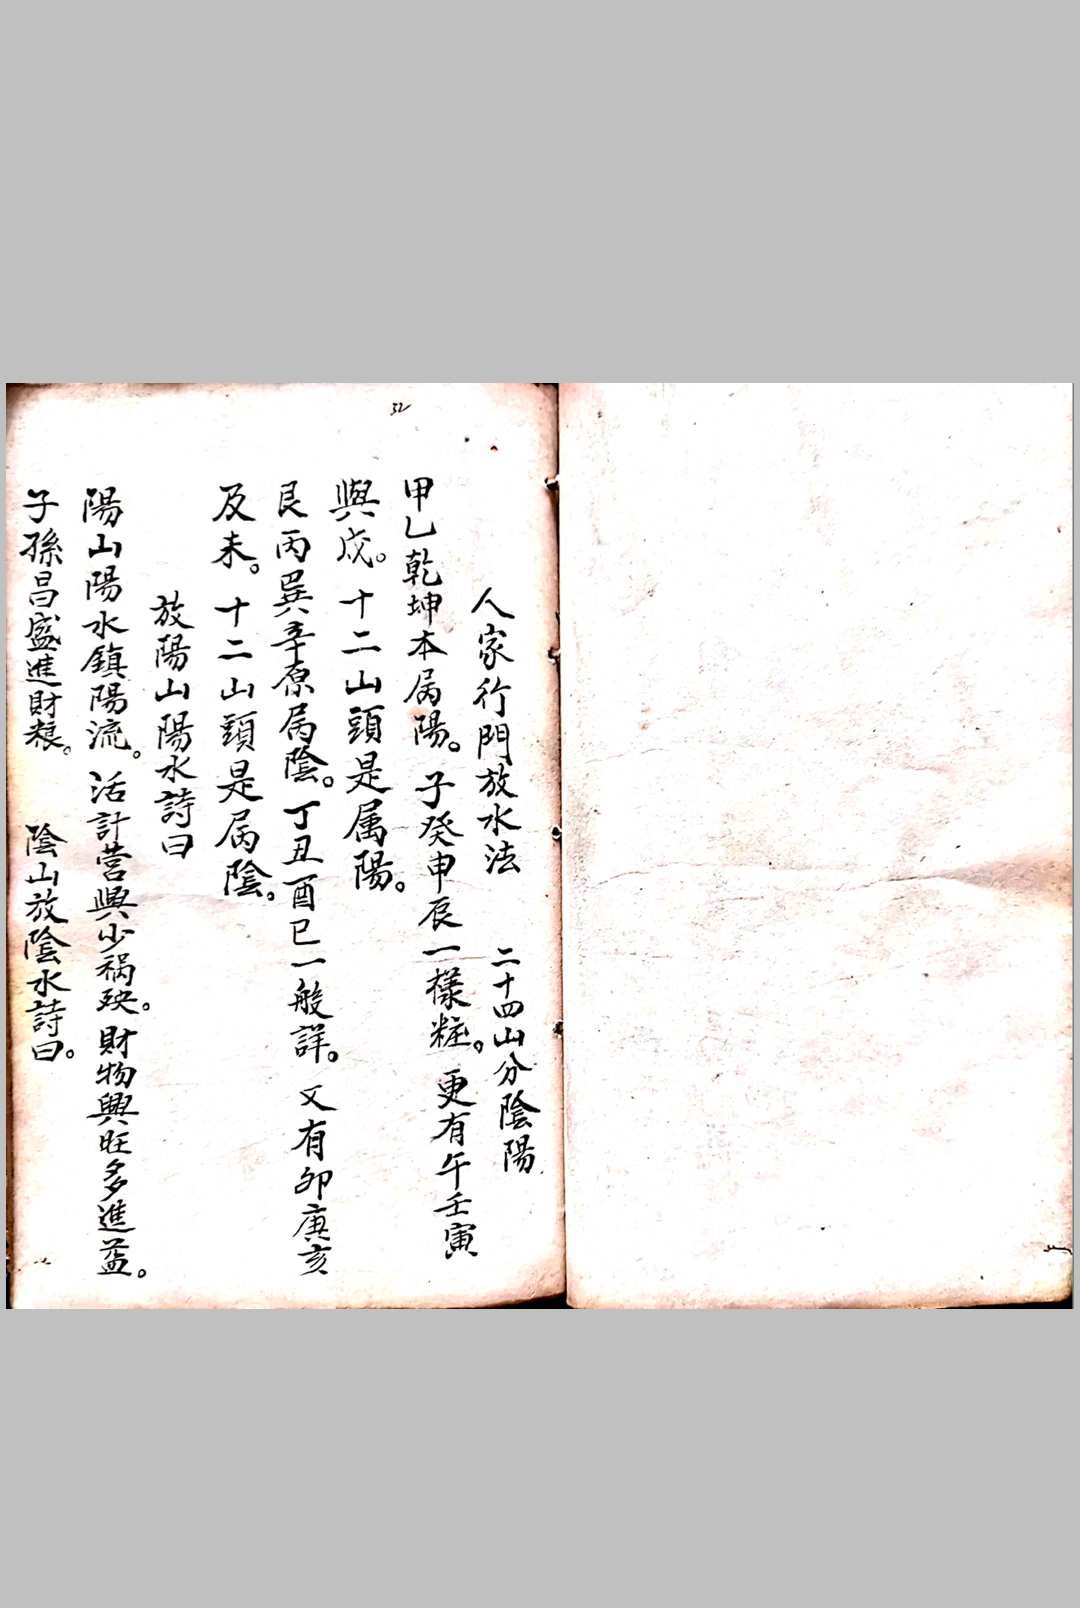 52
人家行門放水法　二十四山分陰陽
甲乙乾坤本属陽。子癸申辰一樣粧。更有午壬寅
與戍。十二山頭是属陽。
艮丙巽辛原属陰。丁丑酉巳一般詳。又有卯庚亥
及未。十二山頭是属陰。
放陽山陽水詩曰
陽山陽水鎮陽流。活計营興少禍殃。財物興旺多進益。
子孫昌盛進財粮。　陰山放陰水詩曰。